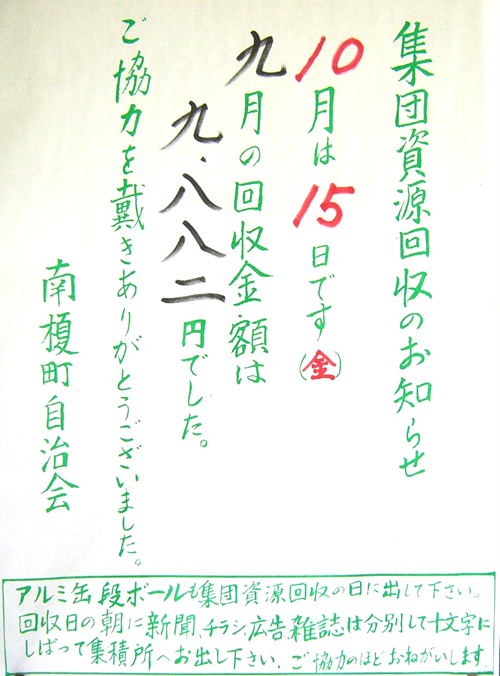 集団資源回収のお知らせ
10月は15日です(金)
九月の回収金額は
九.八八二円でした。
ご協力を戴きありがとうございました。
南榎町自治会
アルミ缶段ボールも集団資源回収の日に出して下さい。
回収日の朝に新聞、チラシ、広告雑誌は分別して十文字に
しばって集積所へお出し下さい.ご協力のほどおねがいします